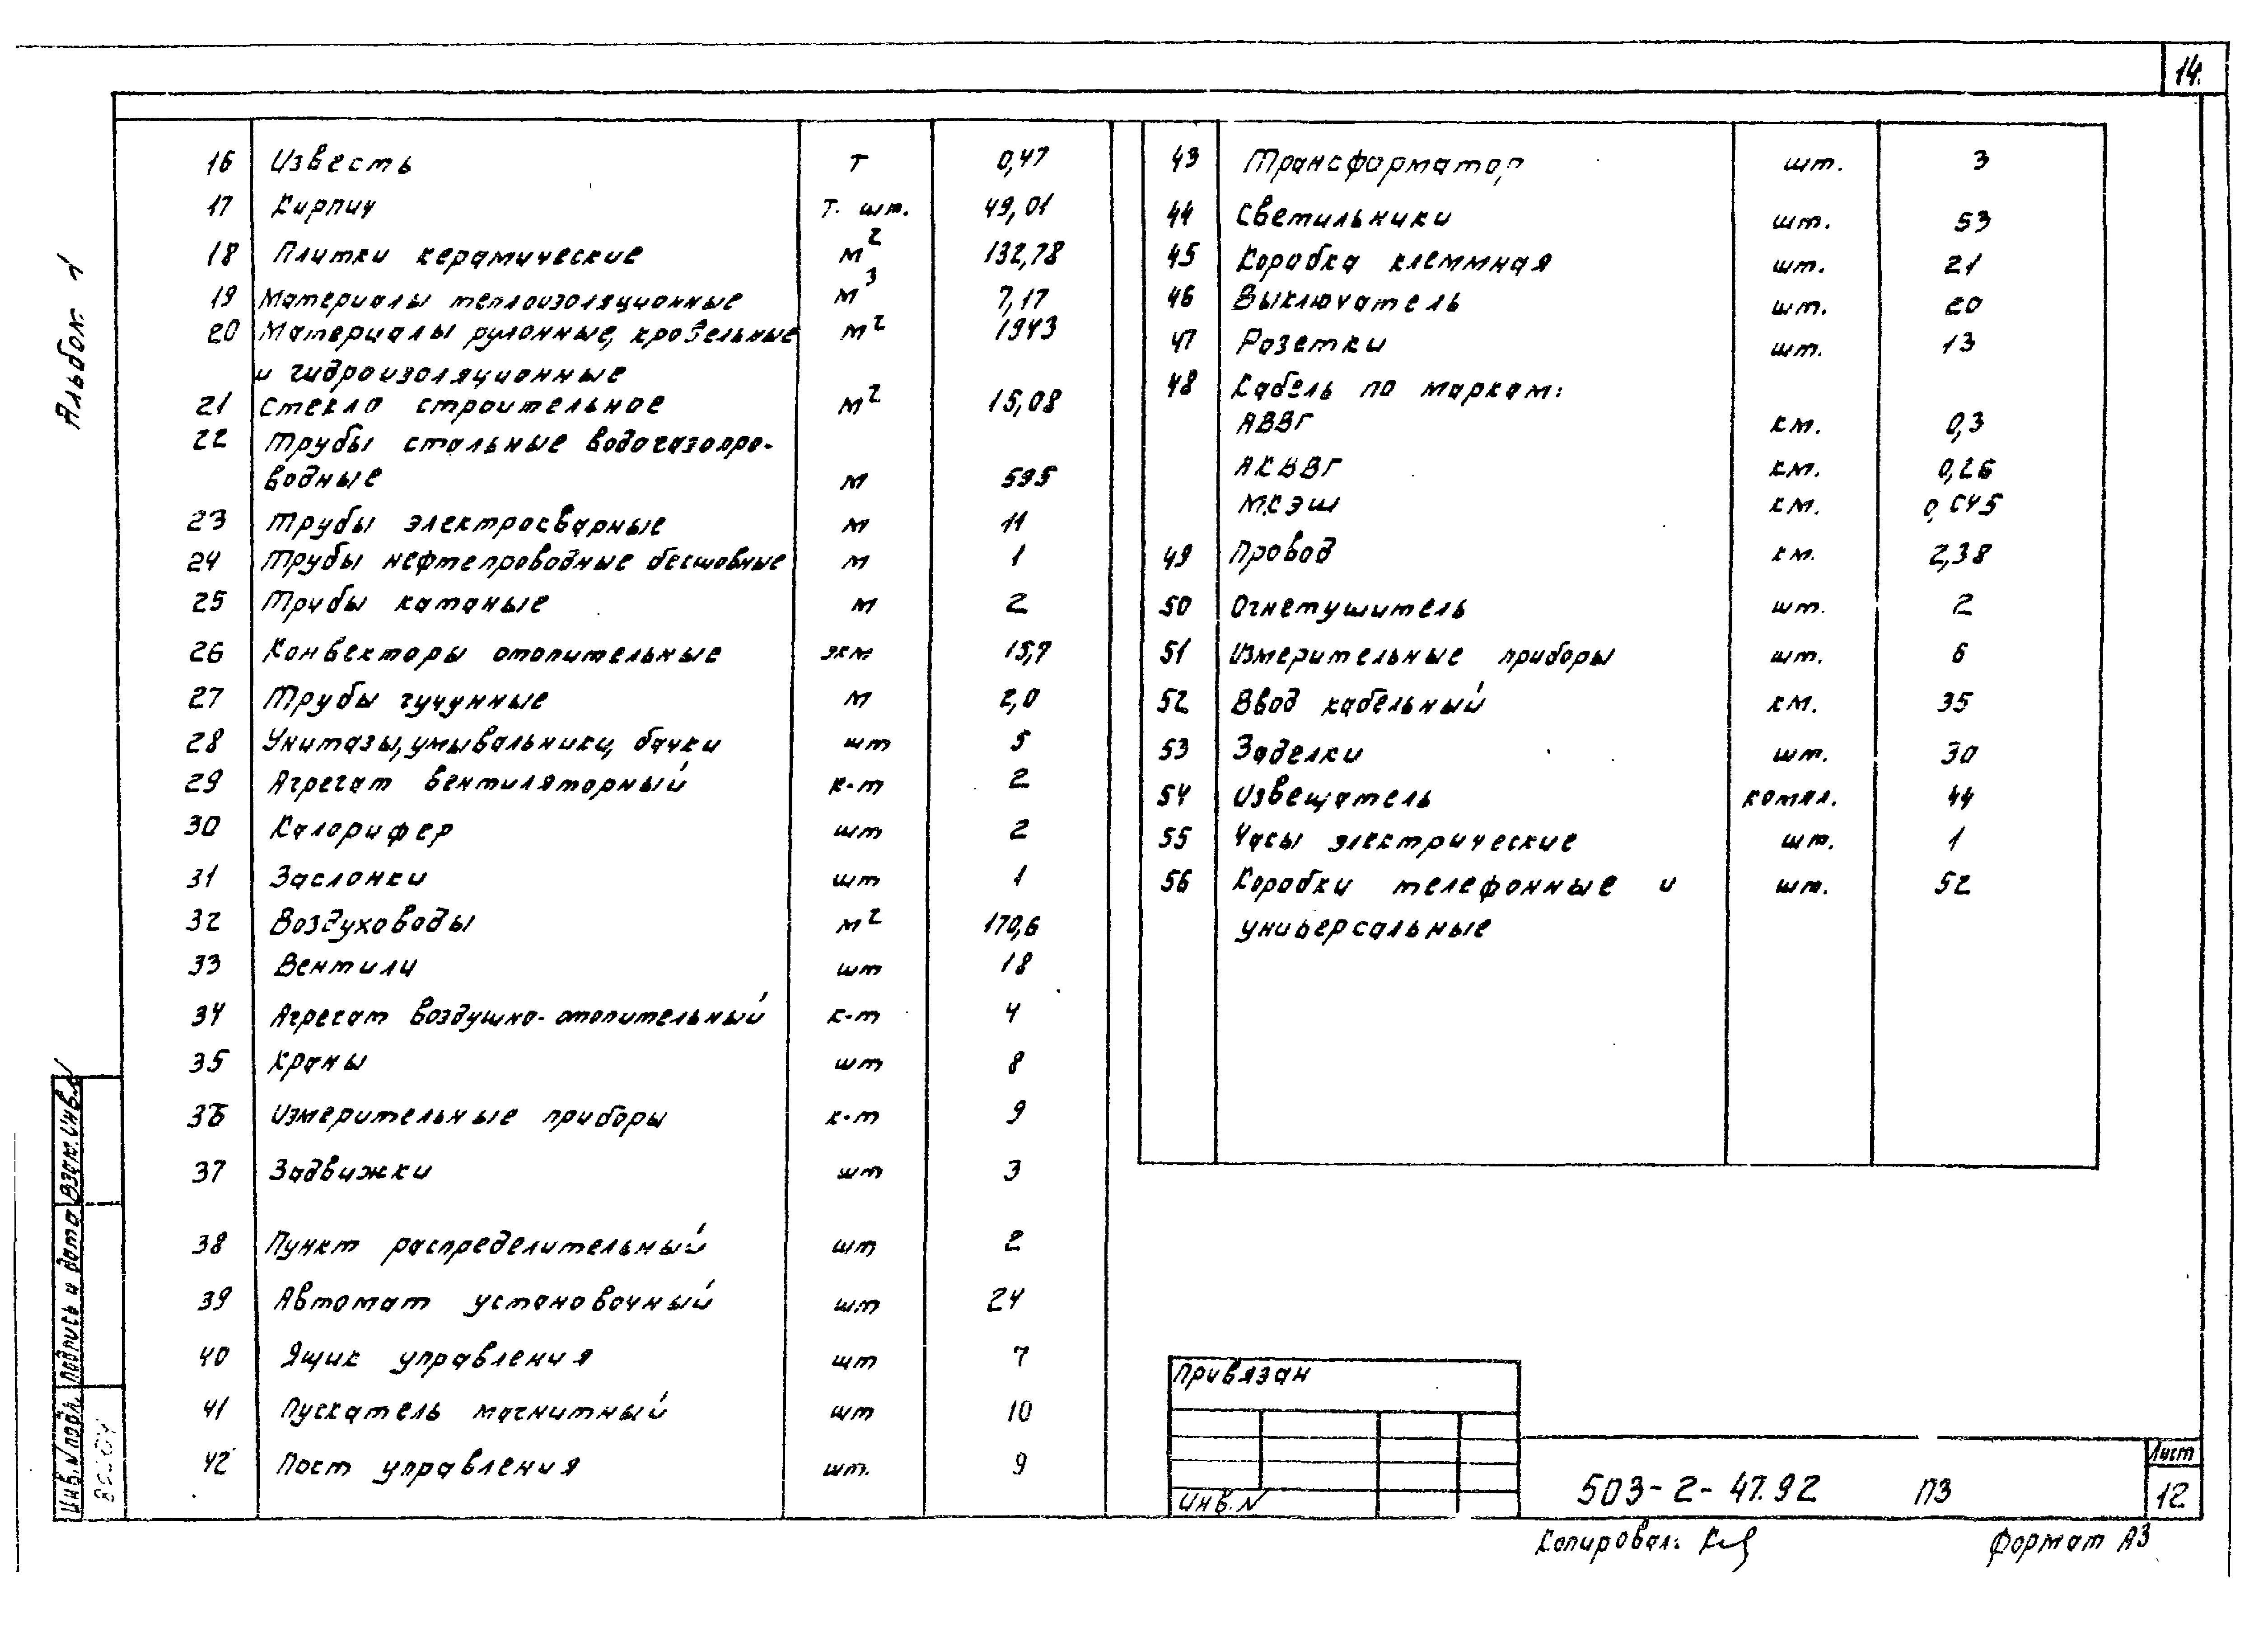 14
Альбом 1
16 Известь т 0,47
17 Кирпич т. шт. 49,01
18 Плитки керамические м2 132,78
19 Материалы теплоизоляционные м3 7,17
20 Материалы рулонные, кровельные м2 1943
и гидроизоляционные
21 Стекло строительное м2 15,08
22 Трубы стальные водогазопро-
водные м 595
23 Трубы электросварные м 11
24 Трубы нефтепроводные бесшовные м 1
25 Трубы катаные м 2
26 Конвекторы отопительные экм 15,7
27 Трубы чугунные м 2,0
28 Унитазы, умывальники, бачки шт 5
29 Агрегат вентиляторный к-т 2
30 Калорифер шт 2
31 Заслонки шт 1
32 Воздуховоды м2 170,6
33 Вентили шт 18
34 Агрегат воздушно-отопительный к-т 4
35 Краны шт 8
36 Измерительные приборы к-т 9
37 Задвижки шт 3
38 Пункт распределительный шт 2
39 Автомат установочный шт 24
40 Ящик управления шт 7
41 Пускатель магнитный шт 10
42 Пост управления шт. 9
43 Трансформатор шт. 3
44 Светильники шт. 53
45 Коробка клеммная шт. 21
46 Выключатель шт. 20
47 Розетки шт. 13
48 Кабель по маркам:
АВВГ км. 0,3
АКВВГ км. 0,26
МКЭШ км. 0,045
49 Провод км. 2,38
50 Огнетушитель шт. 2
51 Измерительные приборы шт. 6
52 Ввод кабельный км. 35
53 Заделки шт. 30
54 Извещатель компл. 44
55 Часы электрические шт. 1
56 Коробки телефонные и шт. 52
универсальные
Взам. инв. №
Подпись и дата
Инв. № подл.
Привязан
Инв. N
503-2-47.92 ПЗ
Лист
12
Копировал:
Формат А3